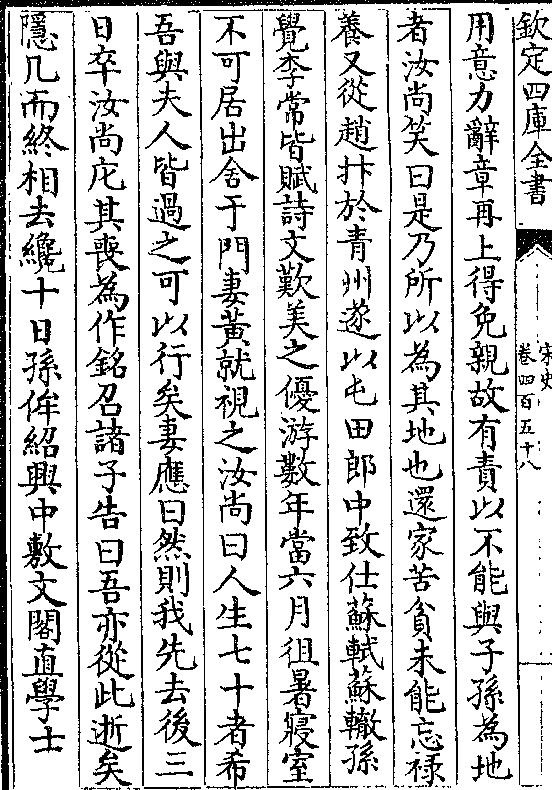 欽定四庫全書
宋史
卷四百五十八
用意力辭章再上得免親故有責以不能與子孫為地
者汝尚笑曰是乃所以為其地也還家苦貧未能忘祿
養又從趙抃於青州遂以屯田郎中致仕蘇軾蘇轍孫
覺李常皆賦詩文歎美之優游數年當六月徂暑寢室
不可居出舍于門妻黃就視之汝尚曰人生七十者希
吾與夫人皆過之可以行矣妻應曰然則我先去後三
日卒汝尚庀其喪為作銘召諸子告曰吾亦從此逝矣
隱几而終相去纔十日孫侔紹興中敷文閣直學士